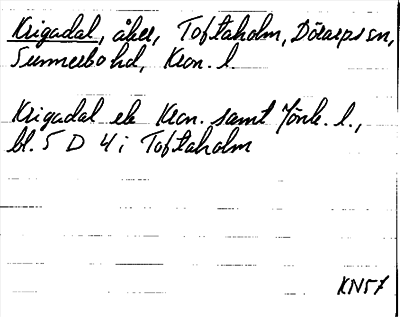 Krigadal, åker, Toftaholm, Dörarps sn,
Sunnerbo hd, Kron. l.
Krigadal ek Kron. samt Jönk. l.,
bl. 5 D 4 i Toftaholm
KN57